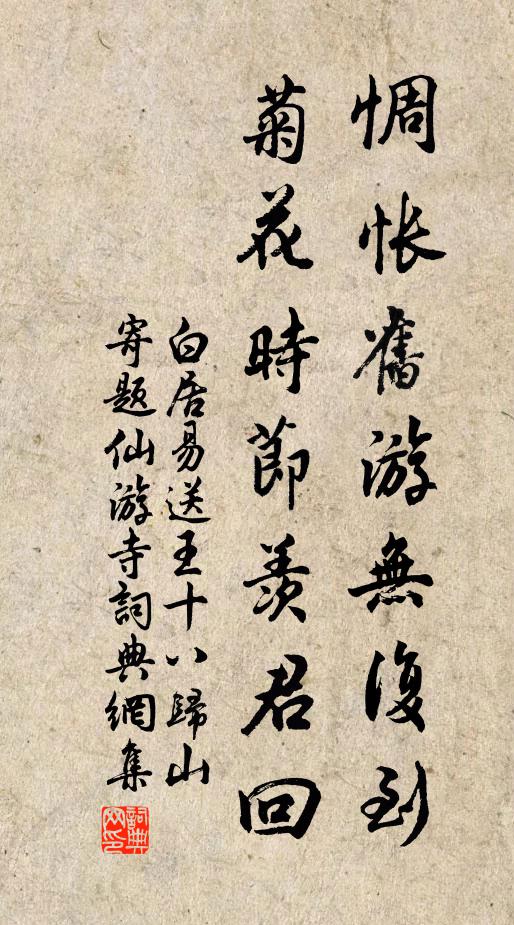 惆悵舊游無復到
菊花時節羨君回
白居易送王十八歸山
寄題仙游寺詞典網集
詞典
网印